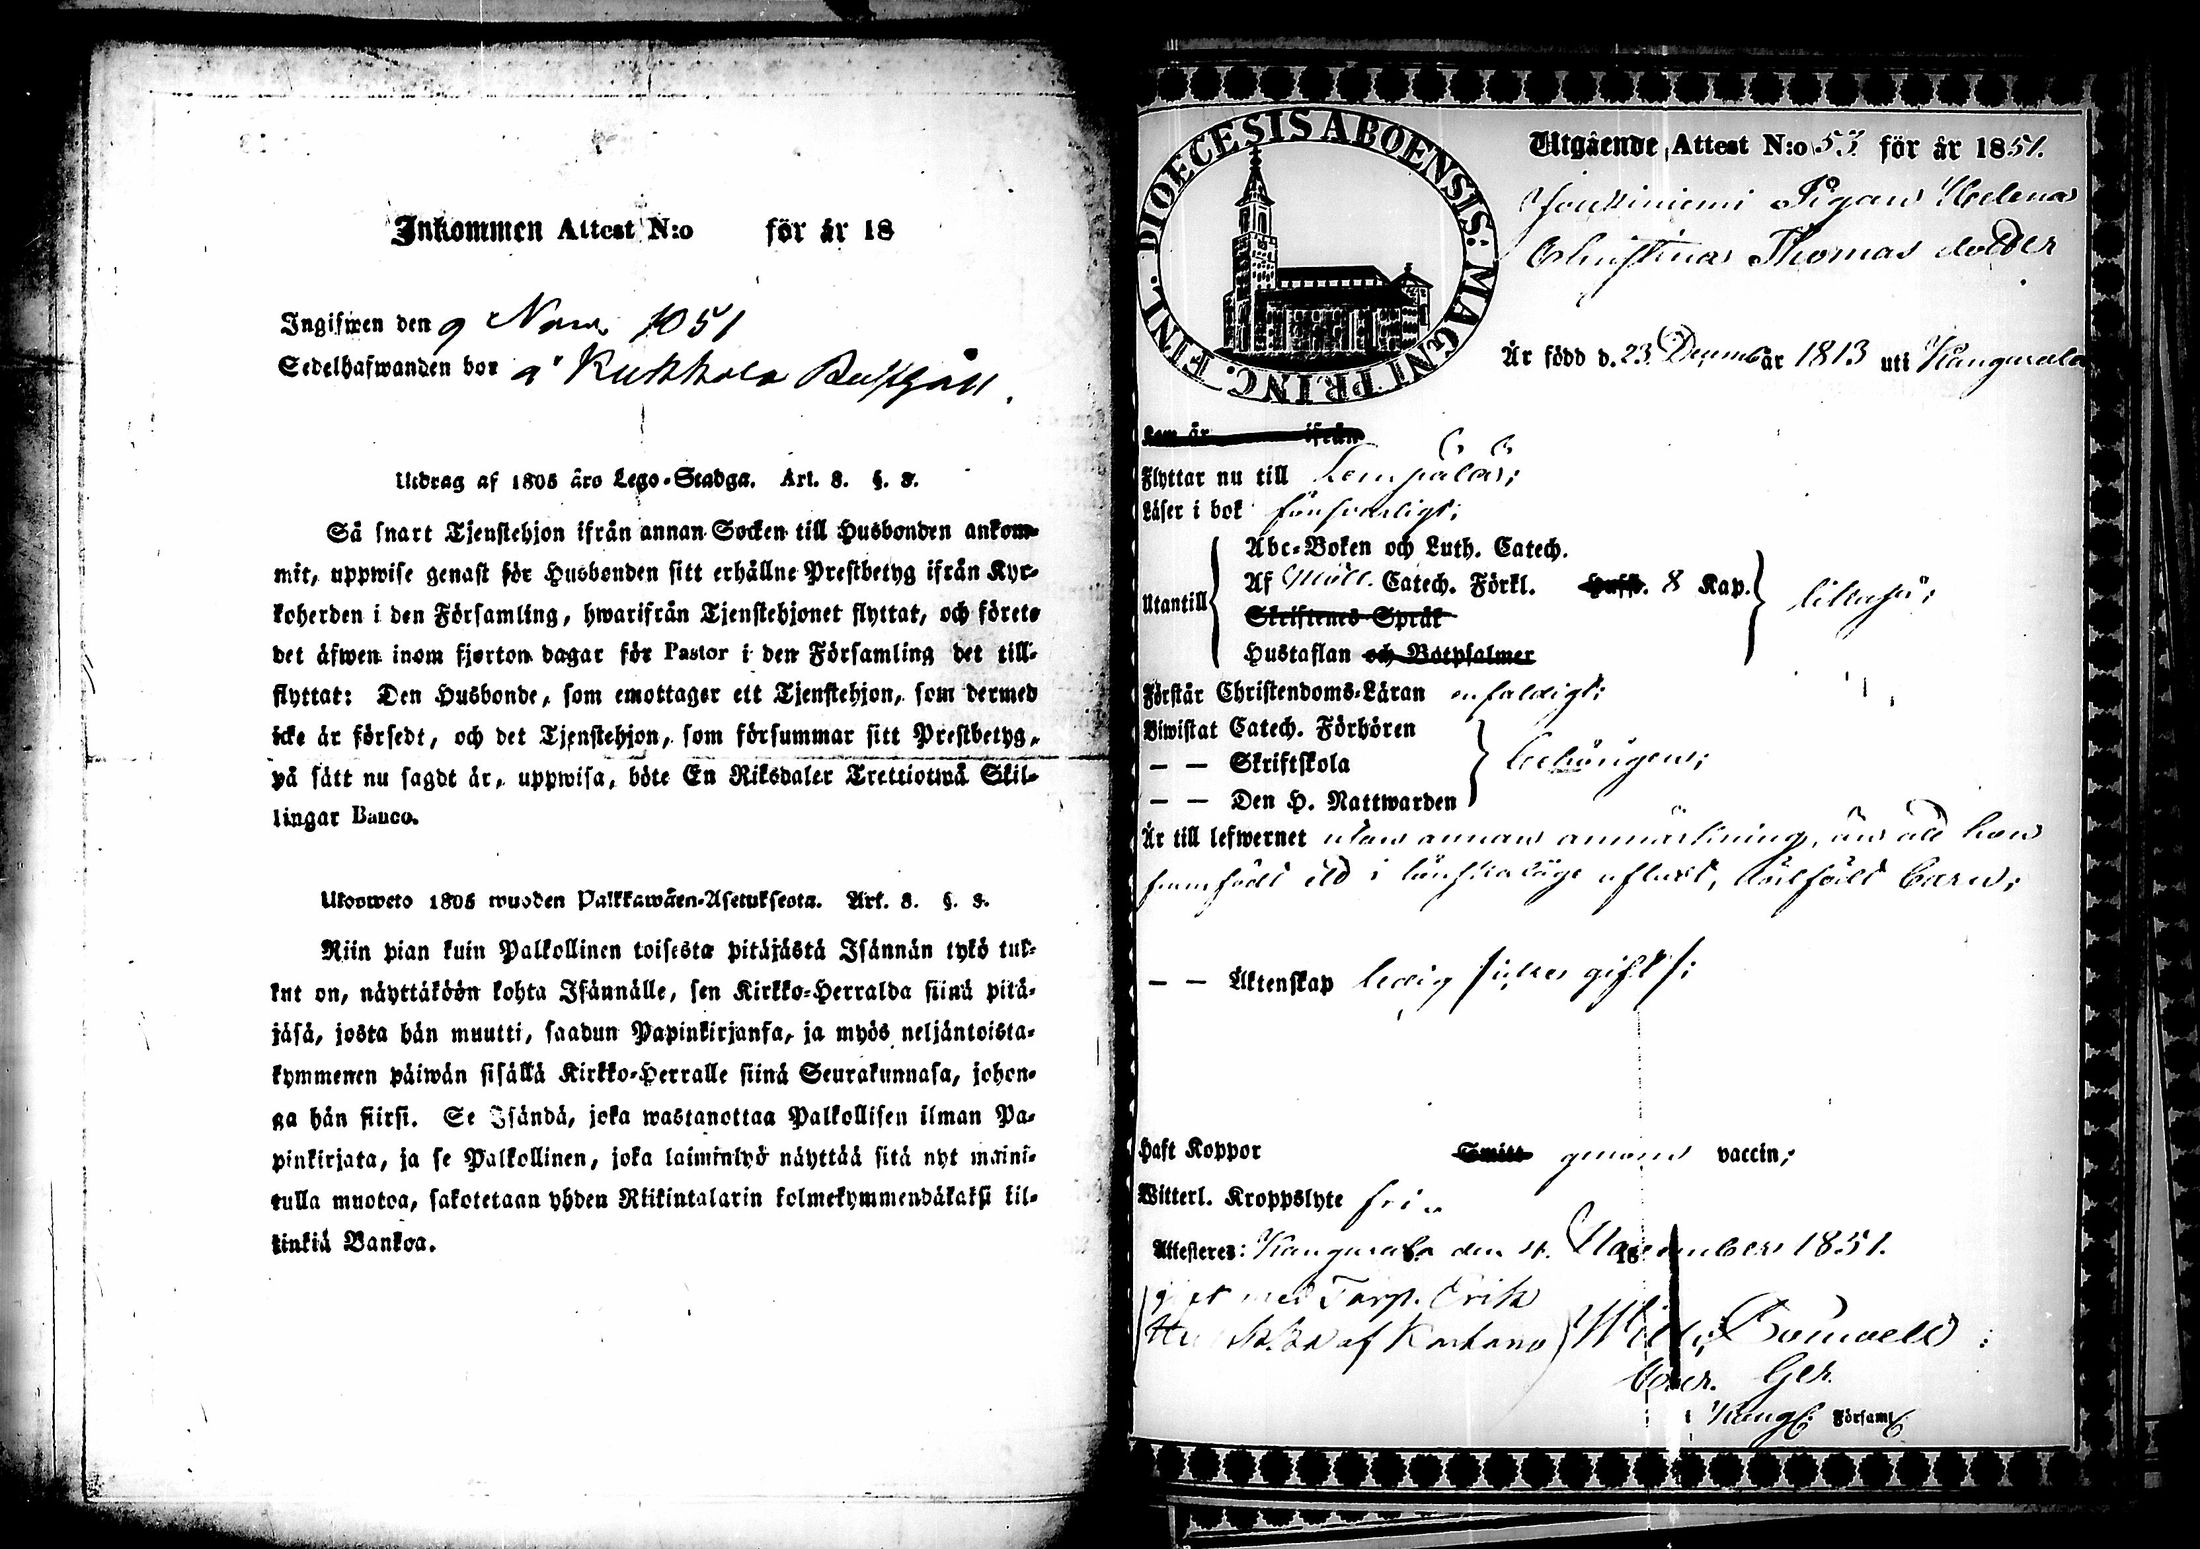 Inkommen Attest N:o för år 18
Ingifwen den 9 Nov. 1851
Sedelhafwanden bor å Kukkola Bustgåll.
Utdrag af 1805 års Lego-Stadga. Art. 8. §. 3.
Så snart Tjenstehjon ifrån annan Socken till Husbonden ankom-
mit, uppwise genast för Husbonden sitt erhållne Prestbetyg ifrån Kyr-
koherden i den Församling, hwarifrån Tjenstehjonet flyttat, och förete
det äfwen inom fjorton dagar för Pastor i den Församling det till-
flyttat: Den Husbonde, som emottager ett Tjenstehjon, som dermed
icke är försedt, och det Tjenstehjon, som försummar sitt Prestbetyg,
på sätt nu sagdt är, uppwisa, böte En Riksdaler Trettiotwå Skil-
lingar Banco.
Ulosweto 1805 wuoden Palkkawäen-Asetuksesta. Art. 8. §. 3.
Niin pian kuin Palkollinen toisesta pitäjästä Isännän tykö tul-
lut on, näyttäköön kohta Isännälle, sen Kirkko-Herralda siinä pitä-
jäsä, josta hän muutti, saadun Papinkirjansa, ja myös neljäntoista-
kymmenen päiwän sisällä Kirkko-Herralle siinä Seurakunnasa, johon-
ga hän siirsi. Se Isändä, joka wastanottaa Palkollisen ilman Pa-
pinkirjata, ja se Palkollinen, joka laiminlyö näyttää sitä nyt maini-
tulla muotoa, sakotetaan yhden Riikintalarin kolmekymmendäkaksi kil-
linkiä Bankoa.
DIOECESIS ABOENSIS: MAGNI PRINC. FINL.
Utgående Attest N:o 53 för år 1851.
Pigan Helena
Christina Thomas dotter
Är född d. 23 Decemb. år 1813 uti Kangasala
Kom år ifrån
Flyttar nu till Lempälä;
Läser i bok försvarligt;
Utantill
Abc-Boken och Luth. Catech.
Af Möll. Catech. Förkl. Hufst. 8 Kap.
Skriftenes Språk
Hustaflan och Botpsalmer
lika så;
Förstår Christendoms-Läran enfaldigt;
Biwistat Catech. Förhören
— — Skriftskola
— — Den H. Nattwarden
behörigen;
Är till lefwernet utan annan anmärkning, än att hon
framfödt ett i lönskaläge aflat, dödfödt barn;
— — Äktenskap ledig till gifte;
Haft Koppor Smitt genom vaccin;
Witterl. Kroppslyte fri.
Attesteres: Kangasala den 4. November 1851.
gift med Torp. Erik
af Kartano
Församl.